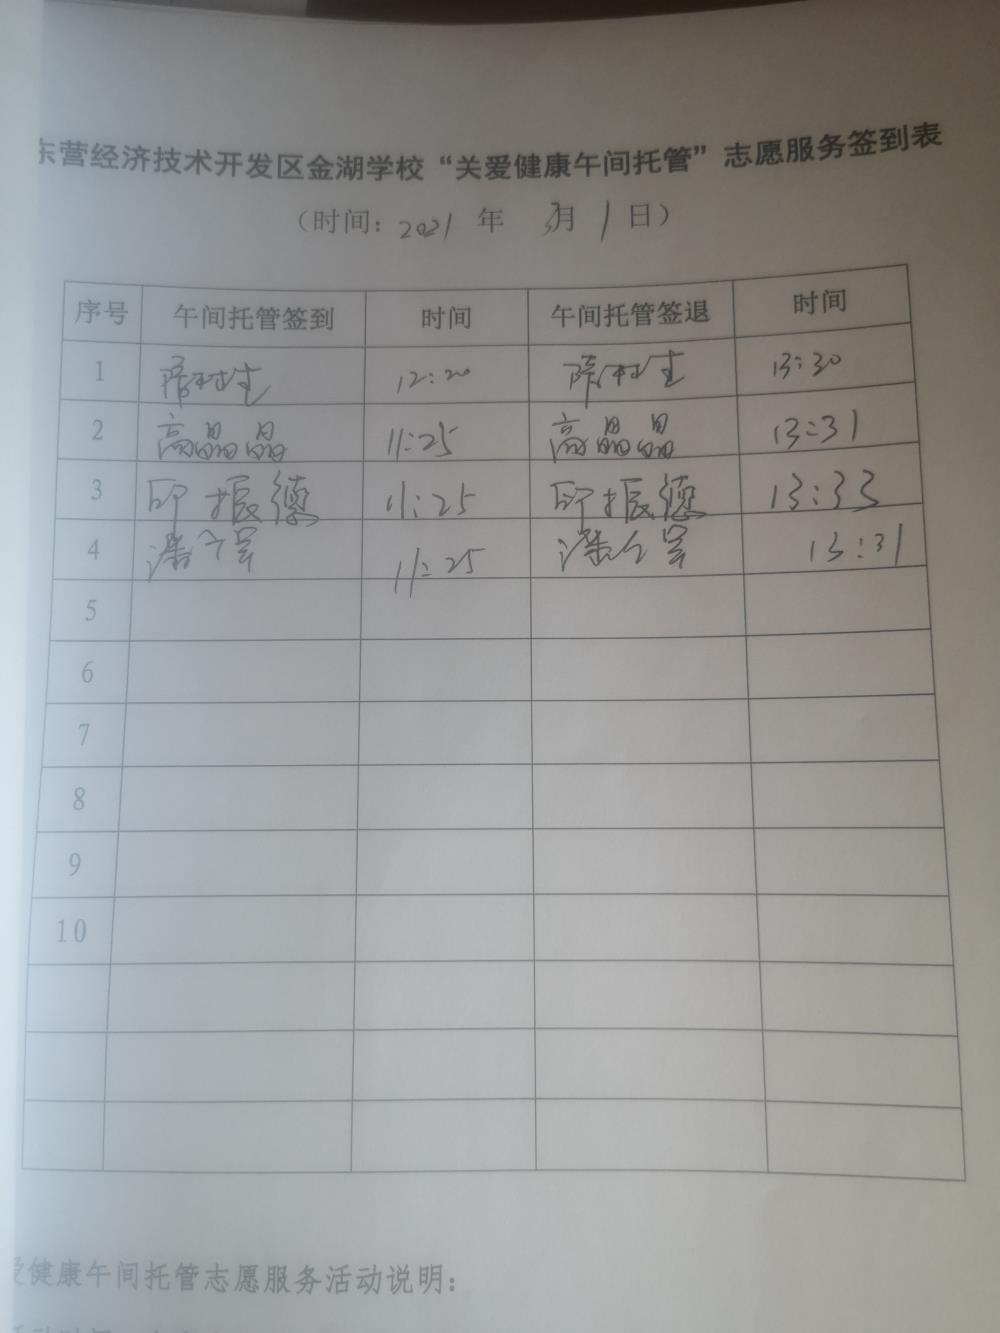 东营经济技术开发区金湖学校“关爱健康午间托管”志愿服务签到表
（时间：2021 年 3月 1 日）
序号 午间托管签到 时间 午间托管签退 时间
1 12:20 13:30
2 高晶晶 11:25 高晶晶 13:31
3 印振德 11:25 印振德 13:33
4 11:25 13:31
5
6
7
8
9
10
爱健康午间托管志愿服务活动说明：